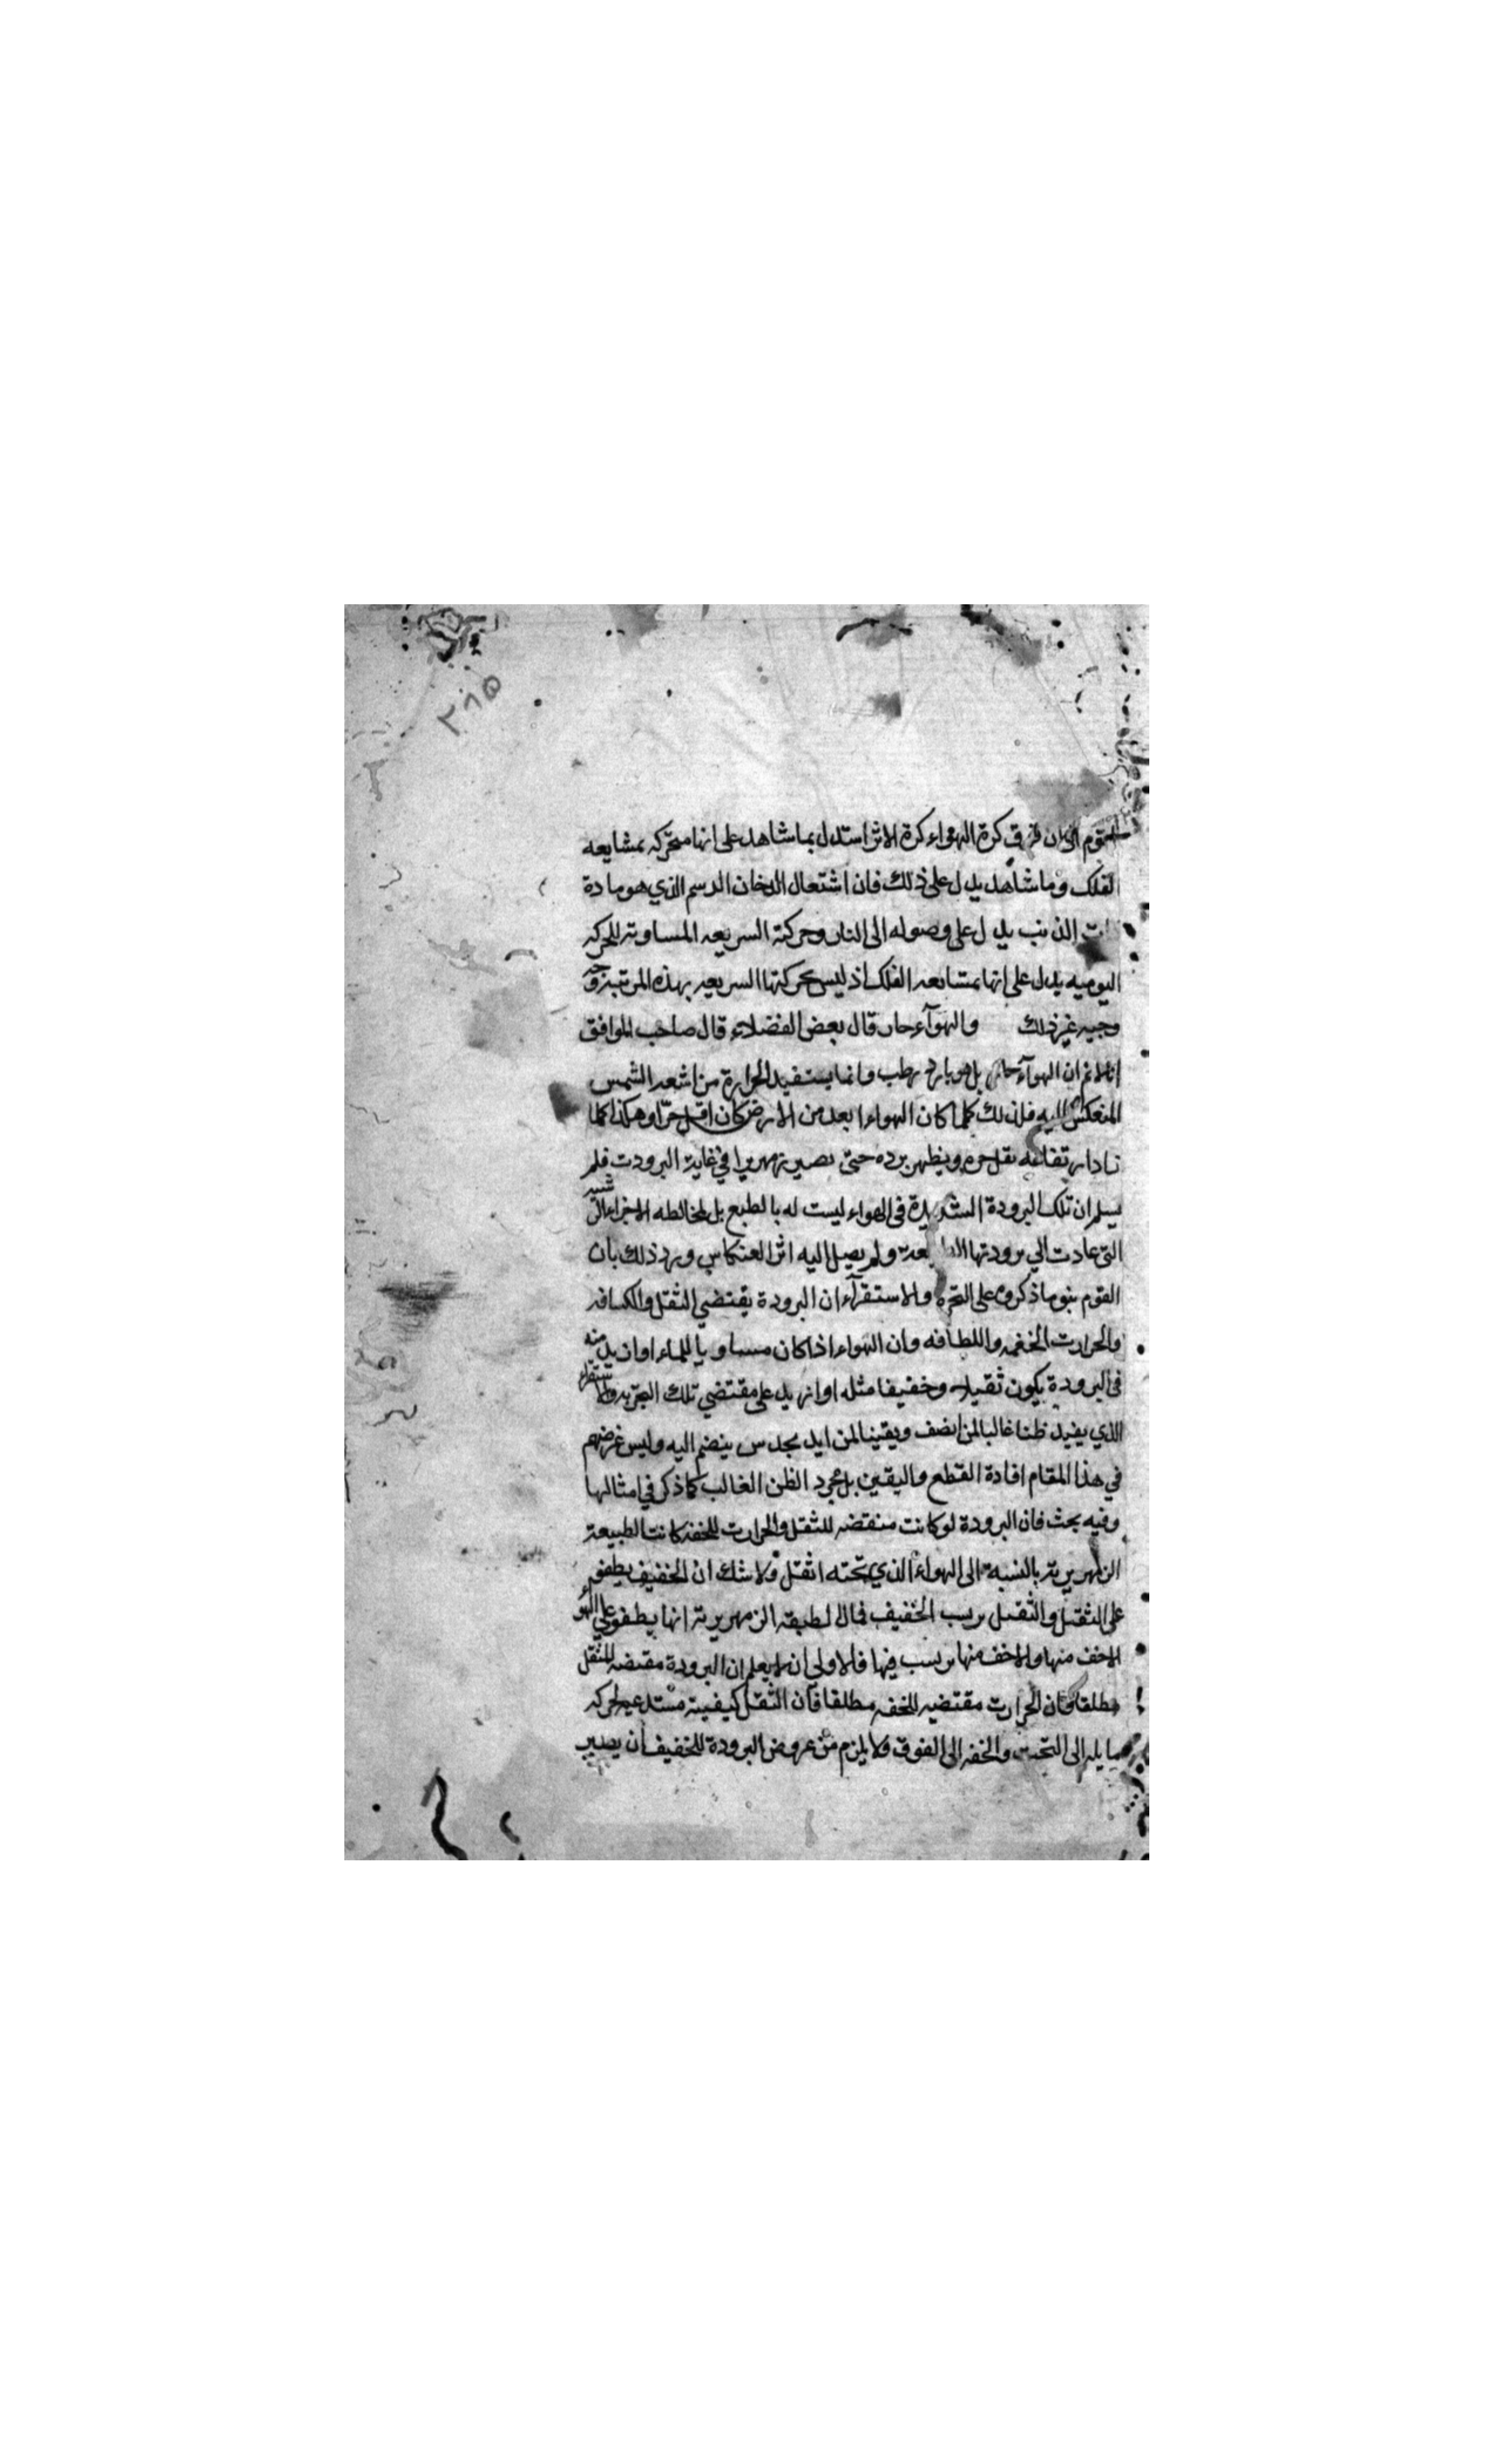 ٣٨٥
القوم الى ان فوق كرة الهواء كرة الاثر استدل بما شاهد على انها متحركه بمشايعه
الفلك وما شاهد يدل على ذلك فان اشتعال الدخان الدسم الذي هو مادة
الذنب يدل على وصوله الى النار وحركته السريعه المساوية للحركه
اليوميه يدل على انها بمشايعه الفلك اذ ليس حركتها السريعه بهذه المرتبة
وجيه غير ذلك والهوآء حار قال بعض الفضلاء قال صاحب المواقف
انا لانم ان الهوآء حار بل هو بارد رطب وانما يستفيد الحرارة من اشعه الشمس
المنعكس اليه فلذلك كلما كان الهواء ابعد من الارض كان اقل حرّا وهكذا كلما
زاد ارتفاعه يقل حره ويظهر برده حتى يصير زمهريرا في غاية البرودت فلم
يسلم ان تلك البرودة الشديدة فى الهواء ليست له بالطبع بل لمخالطه الاجزاء
التى عادت الي برودتها ولم يصل اليه اثر العنكاس ورد ذلك بان
القوم بنو ما ذكروه على التجربه والاستقرآء ان البرودة يقتضي الثقل والكثافه
والحرارت الخفه واللطافه وان الهواء اذا كان مساويا للماء او ازيد منه
فى البرودة يكون ثقيلا وخفيفا مثله او ازيد على مقتضي تلك التجربه والاستقراء
الذي يفيد ظنا غالبا لمن انصف ويقينا لمن ايد بحدس ينضم اليه وليس غرضهم
في هذا المقام افادة القطع واليقين بل مجرد الظن الغالب كما ذكر في امثالها
وفيه بحث فان البرودة لو كانت منقضه للثقل والحرارت للخفه كانت الطبيعة
الزمهريرية بالنسبة الى الهواء الذي تحته اثقل ولا شك ان الخفيف يطفو
على الثقيل والثقيل يرسب الخفيف فما للطبقه الزمهريرية انها يطفو علي الهوآء
الاخف منها والاخف منها يرسب فيها فالاولي ان لا يعلم ان البرودة مقتضه للثقل
مطلقا وان الحرارت مقتضيه للخفه مطلقا فان الثقل كيفية مستدعيه لحركه
مايله الى التحت والخفه الى الفوق ولا يلزم من عروض البرودة للخفيف ان يصير